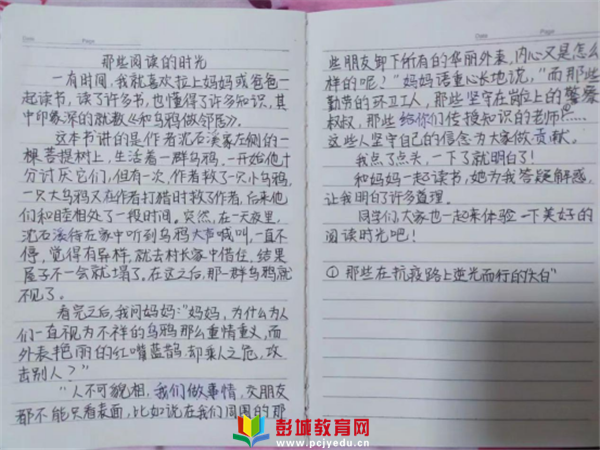 Date Page
那些阅读的时光
一有时间，我就喜欢拉上妈妈或爸爸一
起读书，读了许多书，也懂得了许多知识，其
中印象深的就数《和乌鸦做邻居》。
这本书讲的是作者沈石溪家左侧的一
棵菩提树上，生活着一群乌鸦，一开始他十
分讨厌它们，但有一次，作者救了一只小乌鸦，
一只大乌鸦又在作者打猎时救了作者，后来他
们和睦相处了一段时间。突然，在一天夜里，
沈石溪待在家中听到乌鸦大声喊叫，一直不
停，觉得有异样，就去村长家中借住，结果
屋子不一会就塌了。在这之后，那一群乌鸦就
不见了。
看完之后，我问妈妈："妈妈，为什么为人
们一直视为不祥的乌鸦那么重情重义，而
外表艳丽的红嘴蓝鹊，却乘人之危，攻
击别人？"
"人不可貌相，我们做事情，交朋友
都不能只看表面，比如说在我们周围的那
Date Page
些朋友卸下所有的华丽外表，内心又是怎么
样的呢？"妈妈语重心长地说，"而那些
勤劳的环卫工人，那些坚守在岗位上的警察
叔叔，那些给你们传授知识的老师……
这些人坚守自己的信念为大家做贡献。
我点了点头，一下了就明白了！
和妈妈一起读书，她为我答疑解惑，
让我明白了许多道理。
同学们，大家也一起来体验一下美好的
阅读时光吧！
①那些在抗疫路上逆光而行的"大白"
彭城教育网
www.pcjyedu.cn